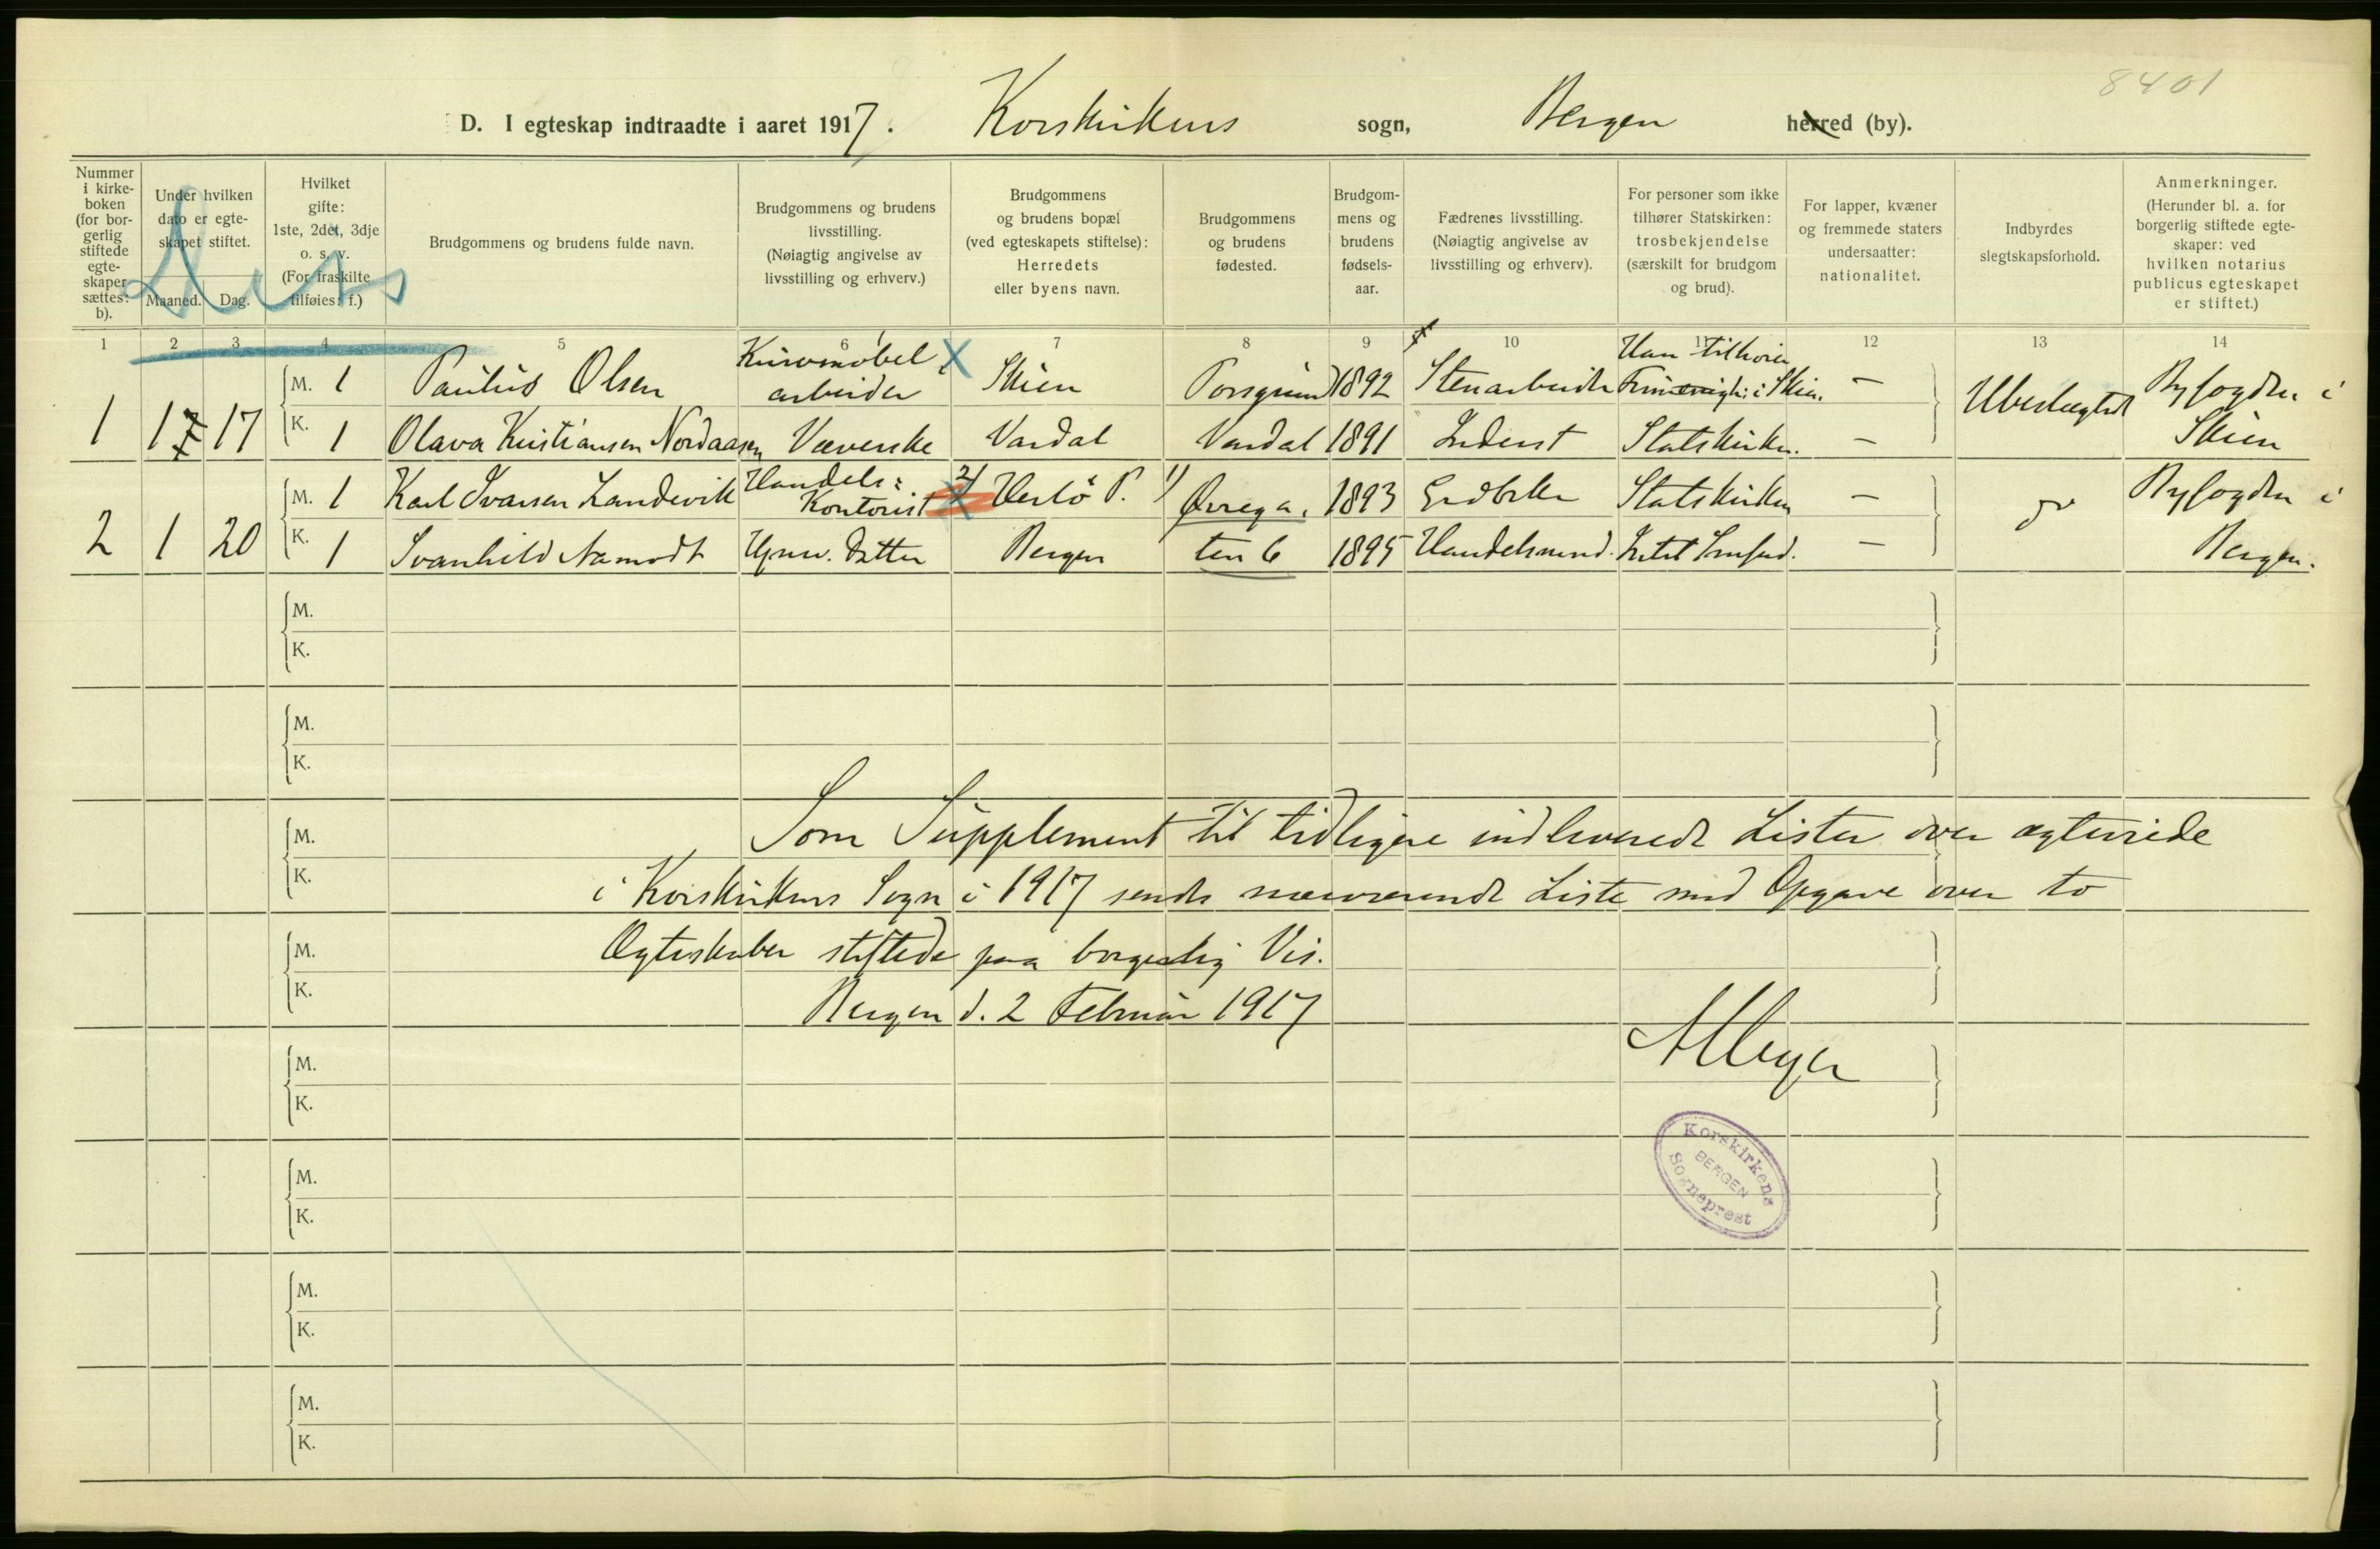 8401
D. I egteskap indtraadte i aaret 1917. Korskirkens sogn, Bergen herred (by).
Nummer i kirke-boken (for bor-gerlig stiftede egte-skaper sættes: b).
Under hvilken dato er egte-skapet stiftet.
Maaned. Dag.
Hvilket gifte: 1ste, 2det, 3dje o. s. v. (For fraskilte tilføies: f.)
Brudgommens og brudens fulde navn.
Brudgommens og brudens livsstilling. (Nøiagtig angivelse av livsstilling og erhverv.)
Brudgommens og brudens bopæl (ved egteskapets stiftelse): Herredets eller byens navn.
Brudgommens og brudens fødested.
Brudgom-mens og brudens fødsels-aar.
Fædrenes livsstilling. (Nøiagtig angivelse av livsstilling og erhverv).
For personer som ikke tilhører Statskirken: trosbekjendelse (særskilt for brudgom og brud).
For lapper, kvæner og fremmede staters undersaatter: nationalitet.
Indbyrdes slegtskapsforhold.
Anmerkninger. (Herunder bl. a. for borgerlig stiftede egte-skaper: ved hvilken notarius publicus egteskapet er stiftet.)
1 2 3 4 5 6 7 8 9 10 11 12 13 14
M. 1 Paulus Olsen Kurvmøbel-arbeider Skien Porsgrund 1892 Stenarbeider Han tilhører i Skien. — Ubeslægtet Byfogden i
1 1 17 K. 1 Olava Kristiansen Nordaasen Væverske Vardal Vardal 1891 Inderst Statskirken. — Skien
M. 1 Karl Ivarsen Landevik Handels-Kontorist 2) Herlö P. 1) 1893 Grdbrker Statskirken — Byfogden i
2 1 20 K. 1 Svanhild Aamodt Hjmv. Datter Bergen 1895 Handelsmand. — Bergen.
M.
K.
M.
K.
M.
K.
Som Supplement til tidligere indleverede Lister over ægteviede
i Korskirkens Sogn i 1917 sendes nærværende Liste med Opgave over to
Ægteskaber stiftede paa borgerlig Vis.
Bergen d. 2 Februar 1917
M.
K.
AMeyer
M.
K.
Korskirkens
BERGEN
Sogneprest
M.
K.
M.
K.
M.
K.